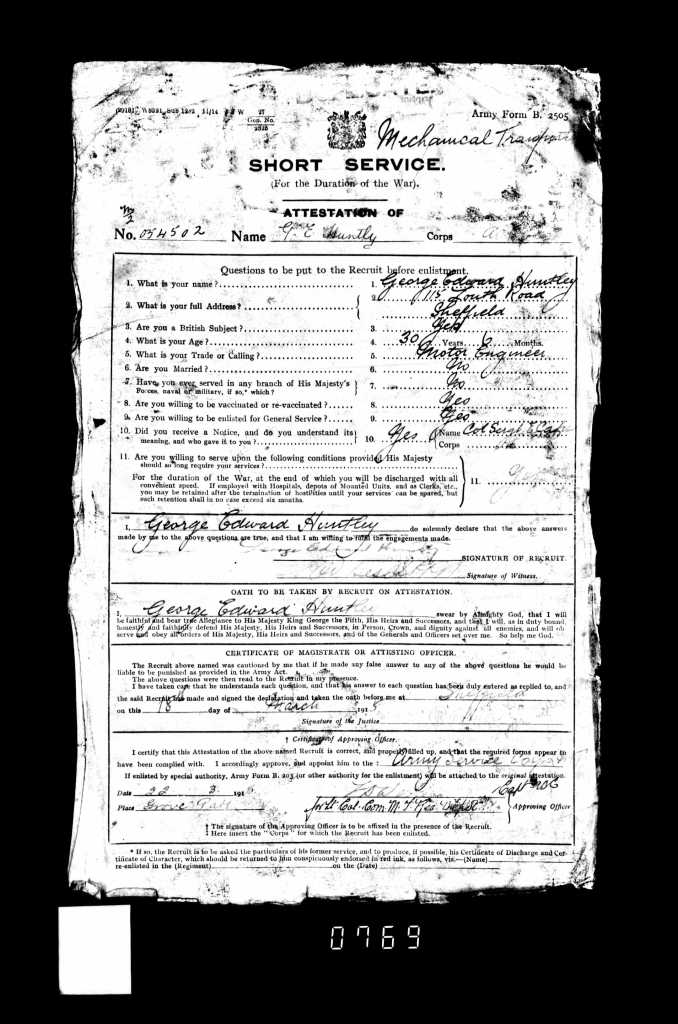 Gen. No.
Army Form B. 2505
Mechanical Transport
SHORT SERVICE.
(For the Duration of the War).
ATTESTATION OF
No. 054502 Name G. E. Huntly Corps A
Questions to be put to the Recruit before enlistment.
1. What is your name? 1. George Edward Huntley
2. What is your full Address? 2. 115 South Road
Sheffield
3. Are you a British Subject? 3. Yes
4. What is your Age? 4. 30 Years 6 Months.
5. What is your Trade or Calling? 5. Motor Engineer
6. Are you Married? 6. No
7. Have you ever served in any branch of His Majesty's
Forces, naval or military, if so,* which? 7. No
8. Are you willing to be vaccinated or re-vaccinated? 8. Yes
9. Are you willing to be enlisted for General Service? 9. Yes
10. Did you receive a Notice, and do you understand its
meaning, and who gave it to you? 10. Yes Name Col Serjt
Corps
11. Are you willing to serve upon the following conditions provided His Majesty
should so long require your services?
For the duration of the War, at the end of which you will be discharged with all
convenient speed. If employed with Hospitals, depots of Mounted Units, and as Clerks, etc.,
you may be retained after the termination of hostilities until your services can be spared, but
such retention shall in no case exceed six months. 11.
I, George Edward Huntley do solemnly declare that the above answers
made by me to the above questions are true, and that I am willing to fulfil the engagements made.
SIGNATURE OF RECRUIT.
Signature of Witness.
OATH TO BE TAKEN BY RECRUIT ON ATTESTATION.
I, George Edward Huntley swear by Almighty God, that I will
be faithful and bear true Allegiance to His Majesty King George the Fifth, His Heirs and Successors, and that I will, as in duty bound,
honestly and faithfully defend His Majesty, His Heirs and Successors, in Person, Crown, and dignity against all enemies, and will ob
serve and obey all orders of His Majesty, His Heirs and Successors, and of the Generals and Officers set over me. So help me God.
CERTIFICATE OF MAGISTRATE OR ATTESTING OFFICER.
The Recruit above named was cautioned by me that if he made any false answer to any of the above questions he would be
liable to be punished as provided in the Army Act.
The above questions were then read to the Recruit in my presence.
I have taken care that he understands each question, and that his answer to each question has been duly entered as replied to, and
the said Recruit has made and signed the declaration and taken the oath before me at Sheffield
on this 18 day of March 1915
Signature of the Justice
† Certificate of Approving Officer.
I certify that this Attestation of the above named Recruit is correct, and properly filled up, and that the required forms appear to
have been complied with. I accordingly approve, and appoint him to the ‡ Army Service Corps
If enlisted by special authority, Army Form B. 203 (or other authority for the enlistment) will be attached to the original attestation.
Date 22 3 191
Capt ASC
Place Grove Park for Lt Col. Com. M.T. Res. Depot Approving Officer
† The signature of the Approving Officer is to be affixed in the presence of the Recruit.
‡ Here insert the "Corps" for which the Recruit has been enlisted.
* If so, the Recruit is to be asked the particulars of his former service, and to produce, if possible, his Certificate of Discharge and Cer-
tificate of Character, which should be returned to him conspicuously endorsed in red ink, as follows, viz.—(Name)
re-enlisted in the (Regiment) on the (Date)
0769